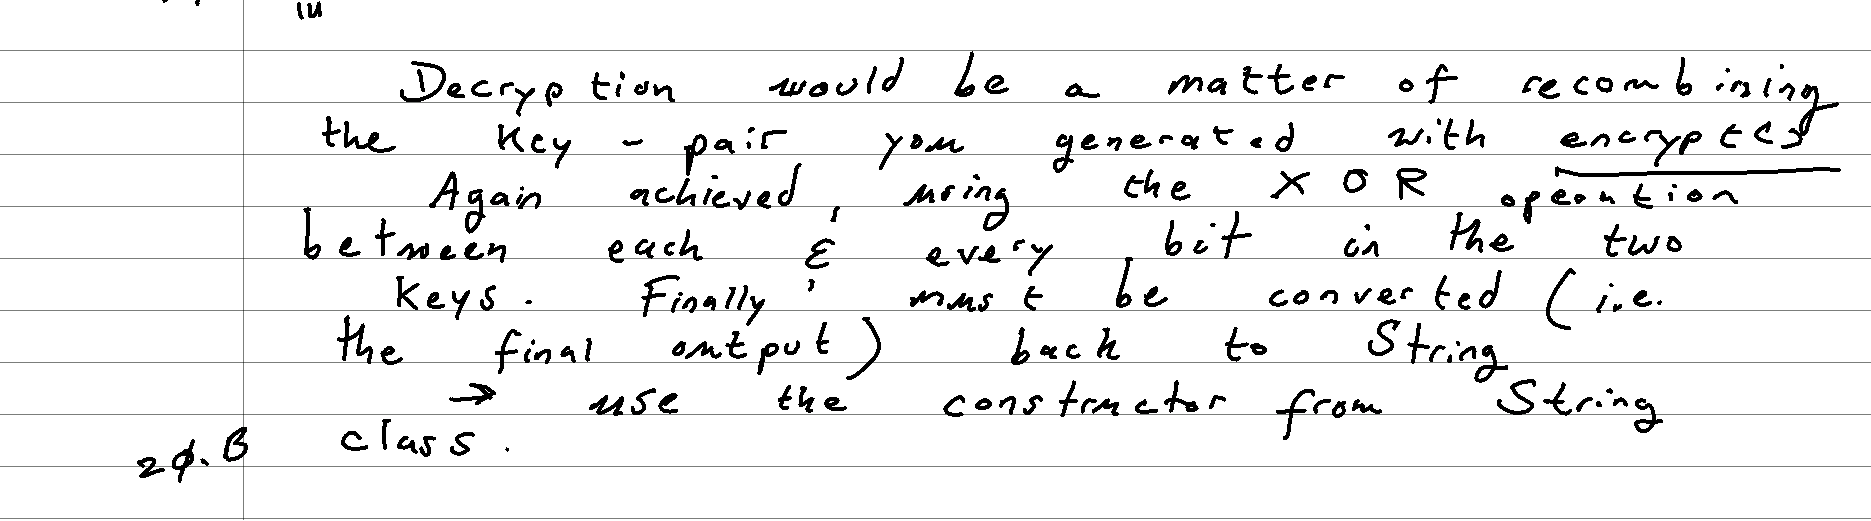 Decryption would be a matter of recombining
the Key - pair you generated with encrypt()
Again achieved, using the XOR operation
between each & every bit in the two
Keys. Finally, must be converted (i.e.
the final output) back to String
→ use the constructor from String
class.
20.B